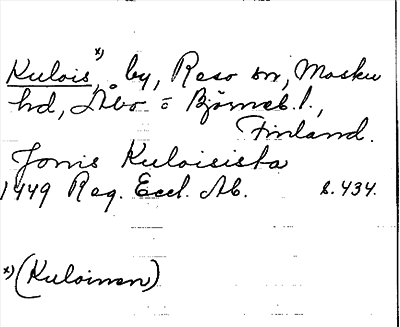 Kulois *), by, Reso sn, Masku
hd, Åbo o Björneb. l.,
Finland.
Jonis Kuloisista
1449 Reg. Eccl. Ab. s. 434.
*) (Kuloinen)